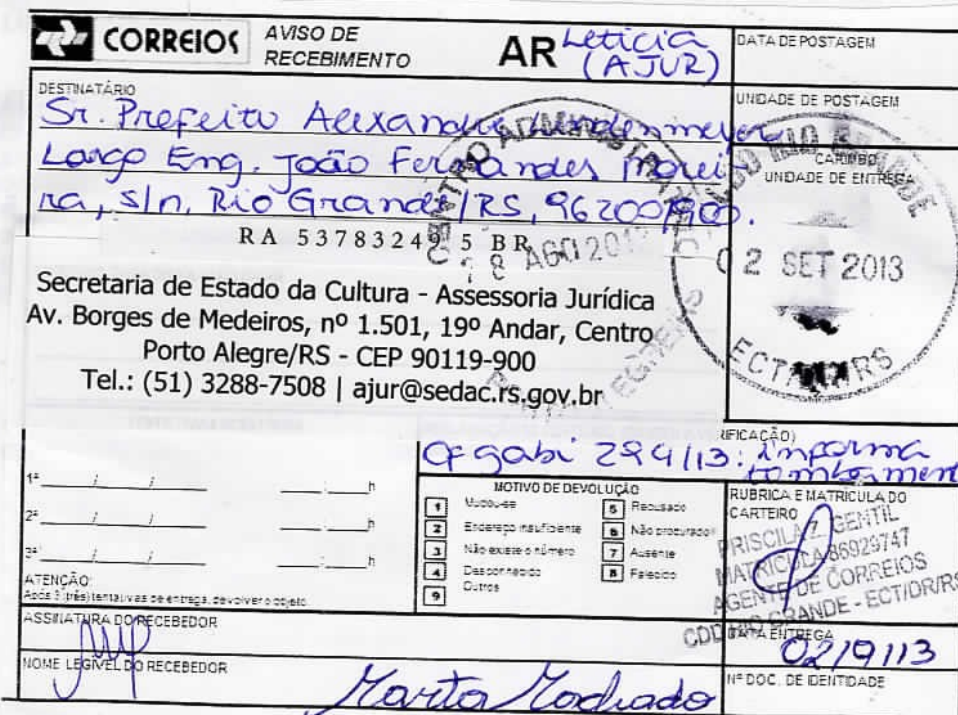 CORREIOS
AVISO DE
RECEBIMENTO
AR Leticia
(AJUR)
DATA DE POSTAGEM
DESTINATÁRIO
Sr. Prefeito Alexandre Lindenmeyer
Largo Eng. João Fernandes Morei
ra, s/n, Rio Grande/RS, 96200900.
UNIDADE DE POSTAGEM
CARIMBO
UNIDADE DE ENTREGA
CENTRO ADMINISTRA
AGO 201
PORTO ALEGRE/RS
CDD RIO GRANDE
02 SET 2013
ECT/DR/RS
RA 53783249 5 BR
Secretaria de Estado da Cultura - Assessoria Jurídica
Av. Borges de Medeiros, nº 1.501, 19º Andar, Centro
Porto Alegre/RS - CEP 90119-900
Tel.: (51) 3288-7508 | ajur@sedac.rs.gov.br
IFICAÇÃO)
Of gabi 294/13: informa
tombament
1ª / / : h
2ª / / : h
3ª / / : h
ATENÇÃO:
Após 3 (três) tentativas de entrega, devolver o objeto.
MOTIVO DE DEVOLUÇÃO
1 Mudou-se
2 Endereço insuficiente
3 Não existe o número
4 Desconhecido
9 Outros
5 Recusado
6 Não procurado
7 Ausente
8 Falecido
RUBRICA E MATRICULA DO
CARTEIRO
PRISCILA Z. GENTIL
MATRICULA 86929747
AGENTE DE CORREIOS
CDD RIO GRANDE - ECT/DR/RS
ASSINATURA DO RECEBEDOR
DATA ENTREGA
02/9/13
NOME LEGÍVEL DO RECEBEDOR
Marta Machado
Nº DOC. DE IDENTIDADE